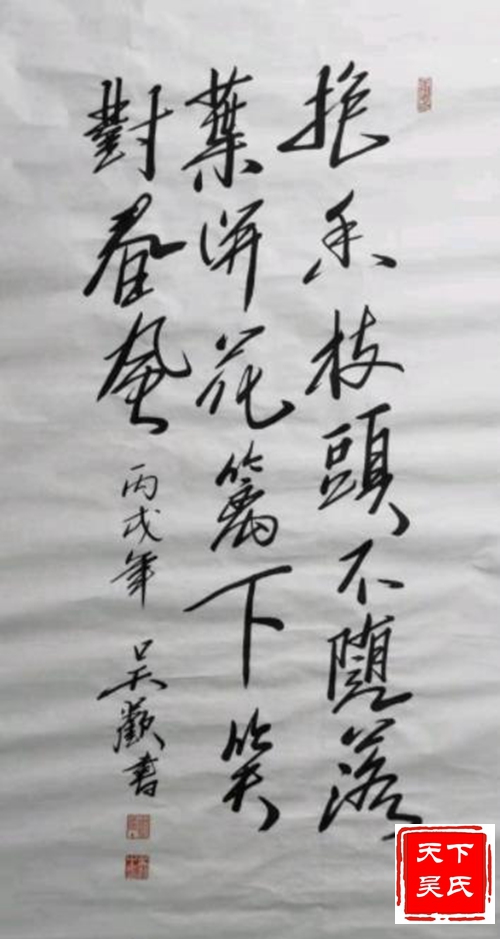 抱香枝頭不墮落
葉併花籬下笑
對春風
丙戌年 吴歡書
天下
吴氏